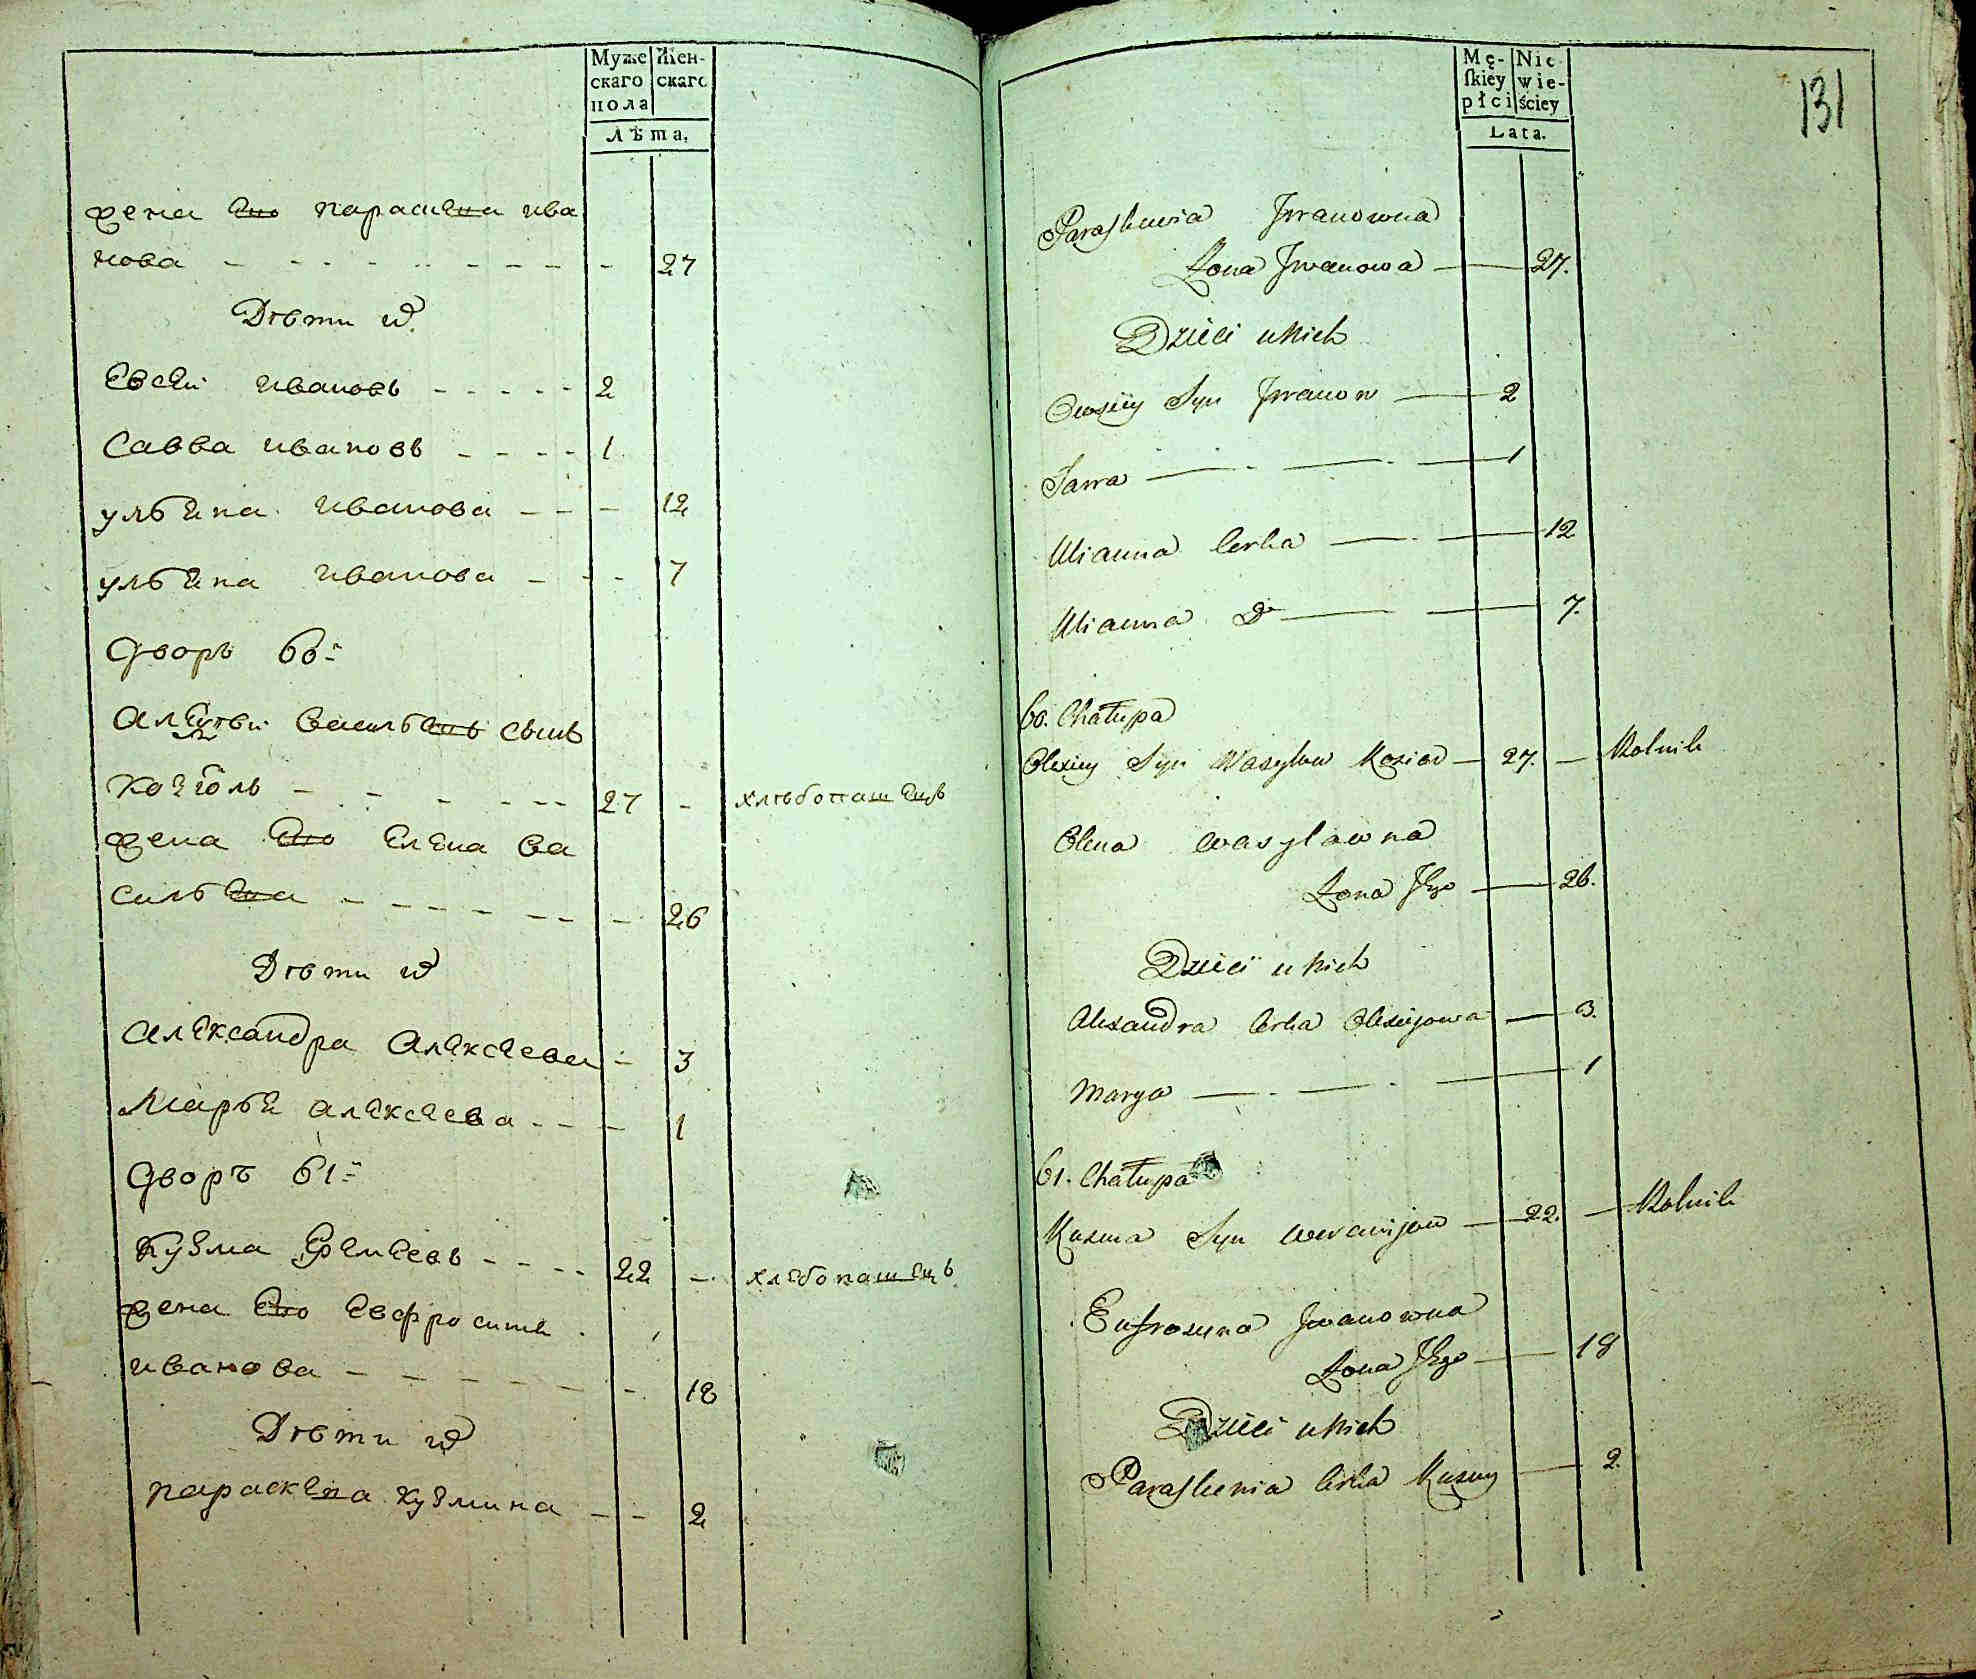 Муже
скаго
пола
Жен-
скаго
Лѣта.
жена его параскева ива
нова - - - - - - - - 27
Дѣти их
Евсей ивановъ - - - - - 2
Савва ивановъ - - - - 1
ульяна иванова - - - 12
ульяна иванова - - - 7
Дворъ 60й
Алексѣй васильевъ сынъ
козіолъ - - - - - - - 27 - хлѣбопашецъ
жена его Елена ва
сильева - - - - - - - 26
Дѣти их
Александра Алексеева - 3
Марья алексеева - - - - 1
Дворъ 61й
Кузма Еремеевъ - - - - 22 - хлебопашецъ
жена его Евфросиния
иванова - - - - - - - 18
Дѣти их
параскева кузмина - - 2
Mę-
skiey
płci
Nie
wie-
ściey
Lata.
131
Paraskewia Jwanowna
Żona Jwanowa — 27.
Dzieci u Nich
Owsiiy Syn Jwanow — 2
Sawa — - — - — 1
Ulianna Corka — - — 12
Ulianna Do — — 7.
60. Chałupa
Olexiiy Syn Wasylow Kozioł — 27. — Rolnik
Olena wasylowna
Żona Jego — 26.
Dzieci u Nich
Alexandra Corka Olexiiowa — 3.
Marya — - — - — 1
61. Chałupa
Kuzma Syn — 22. — Rolnik
Eufrozyna Jwanowna
Żona Jego — 18
Dzieci u Nich
Paraskewia Corka Kuzmy — 2.